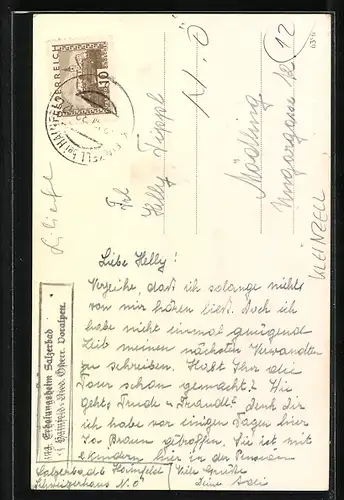 ÖSTERREICH
10
KLEINZELL b. HAINFELD
12
Frl.
Helly Tippl
Mödling
Ungargasse 12
N.Ö.
KLEINZELL
Liebe Helly!
Verzeihe, daß ich solange nichts
von mir hören ließ. Doch ich
habe nicht einmal genügend
Zeit meinen nächsten Verwandten
zu schreiben. Habt Ihr die
Tour schon gemacht? Wie
geht's Trude u. Traudl? Denk dir
ich habe vor einigen Tagen hier
Braun getroffen. Sie ist mit
Kindern hier in der Pension
Salzerbad b. Hainfeld Viele Grüße
Schweizerhaus N.Ö. Deine
Erholungsheim Salzerbad
Hainfeld, Nied. Österr. Voralpen.